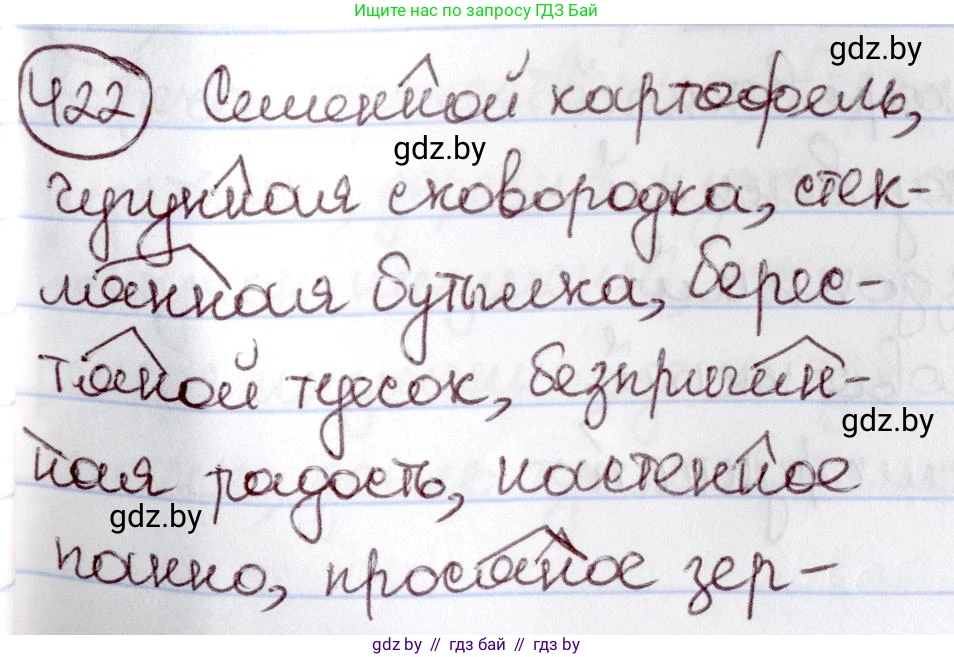 Ищите нас по запросу ГДЗ Бай
gdz.by
422 Семенной картофель,
gdz.by
чугунная сковородка, стек-
лянная бутылка, берес-
тяной туесок, безпричин-
gdz.by
ная радость, настенное
gdz.by
панно, просяное зер-
gdz.by // гдз бай // гдз by